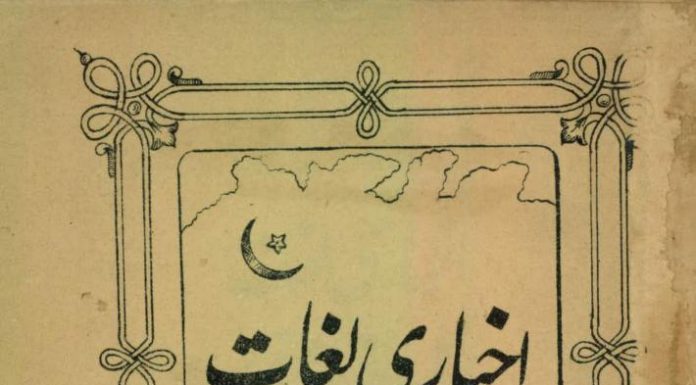 اخباری لغات